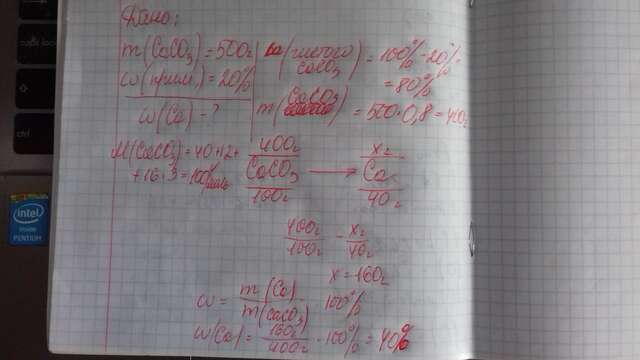 Дано:
m(CaCO₃) = 500г
ω(прим.) = 20%
ω(Ca) - ?
ω(чистого CaCO₃) = 100% - 20% =
= 80%
m(CaCO₃) = 500 · 0,8 = 400г
M(CaCO₃) = 40 + 12 +
+ 16 · 3 = 100г/моль
400г xг
CaCO₃ → Ca
100г 40г
400г/100г - xг/40г
x = 160г
ω = m(Ca)/m(CaCO₃) · 100%
ω(Ca) = 160г/400г · 100% = 40%
caps lock
ctrl
intel
inside
PENTIUM